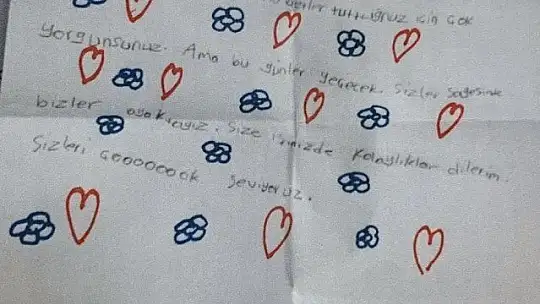 tuttuğnuz için çok
yorgunsunuz. Ama bu günler geçecek. Sizler sayesinde
bizler ayaktayız. Size işinizde kolaylıklar dilerim.
Sizleri çoooooook seviyoruz.